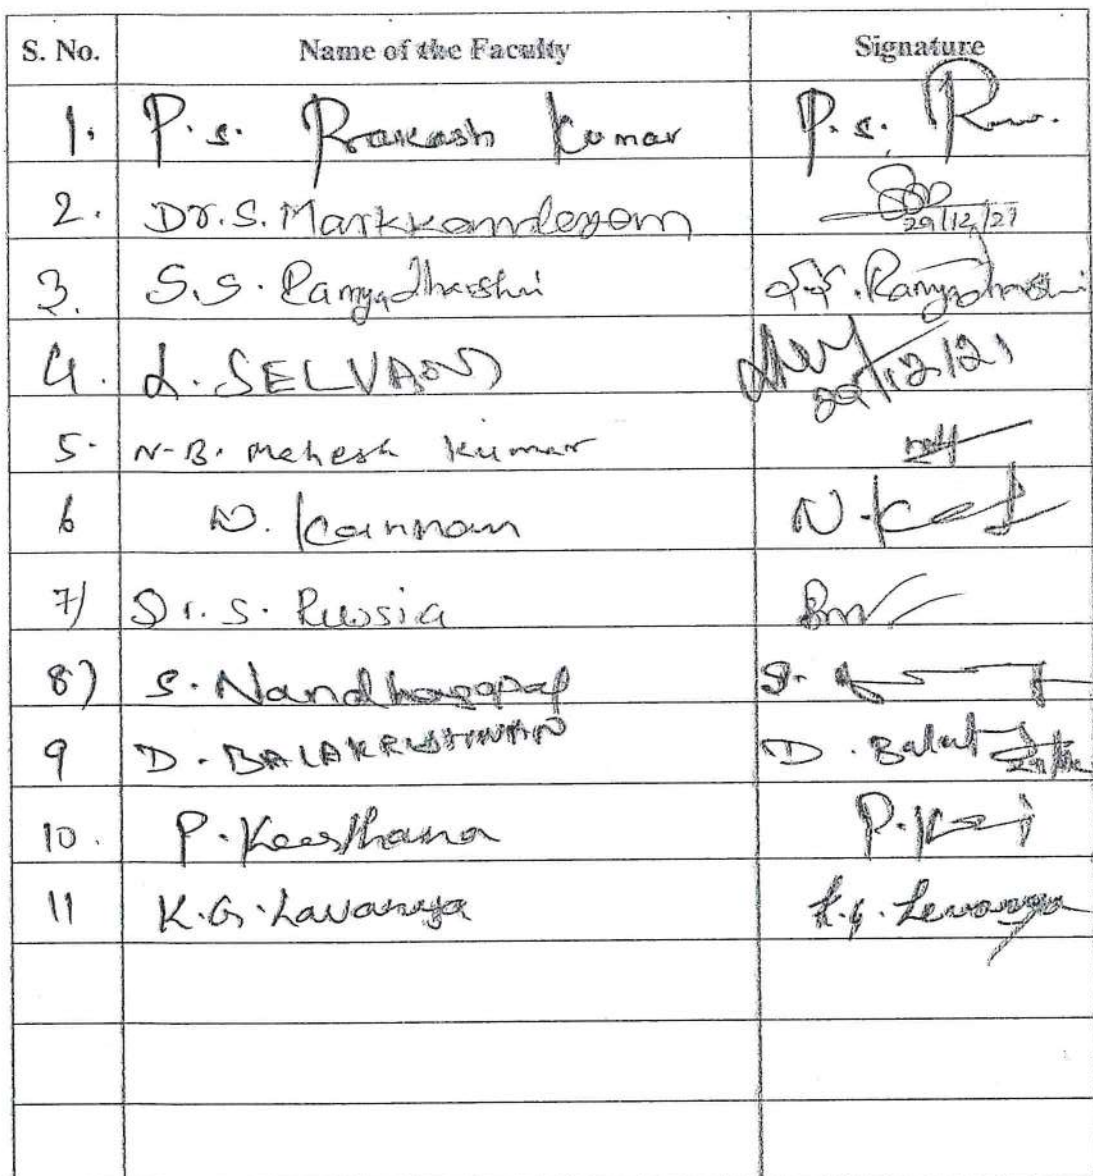 S. No. Name of the Faculty Signature
1. P. s. Prakash Kumar P. s.
2. Dr. S. Markkandeyan 29/12/21
3. S.S. Ramyadharshni S.S. Ramyadharshni
4. L. SELVAM 29/12/21
5. N.B. Mahesh Kumar
6 N. Kannan N.
7) Dr. S. Russia
8) S. Nandhagopal S.
9 D. BALAKRISHNAN D. Balak
10. P. Keerthana P.
11 K.G. Lavanya K.G. Lavanya